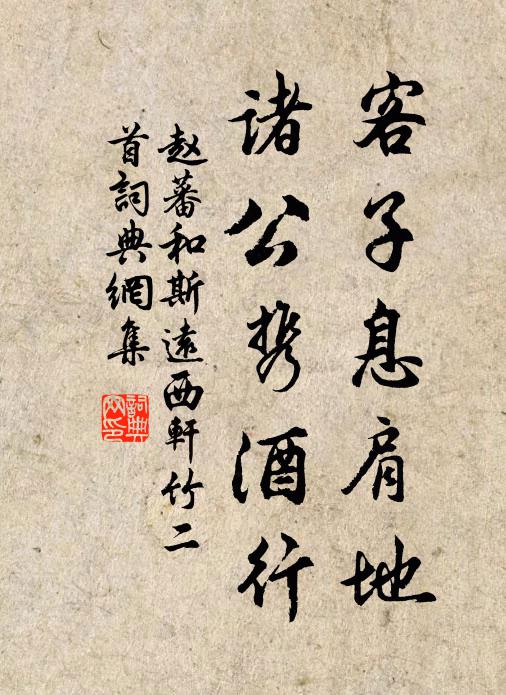 客子息肩地
诸公携酒行
赵蕃和斯远西軒竹二
首詞典網集
詞典网印